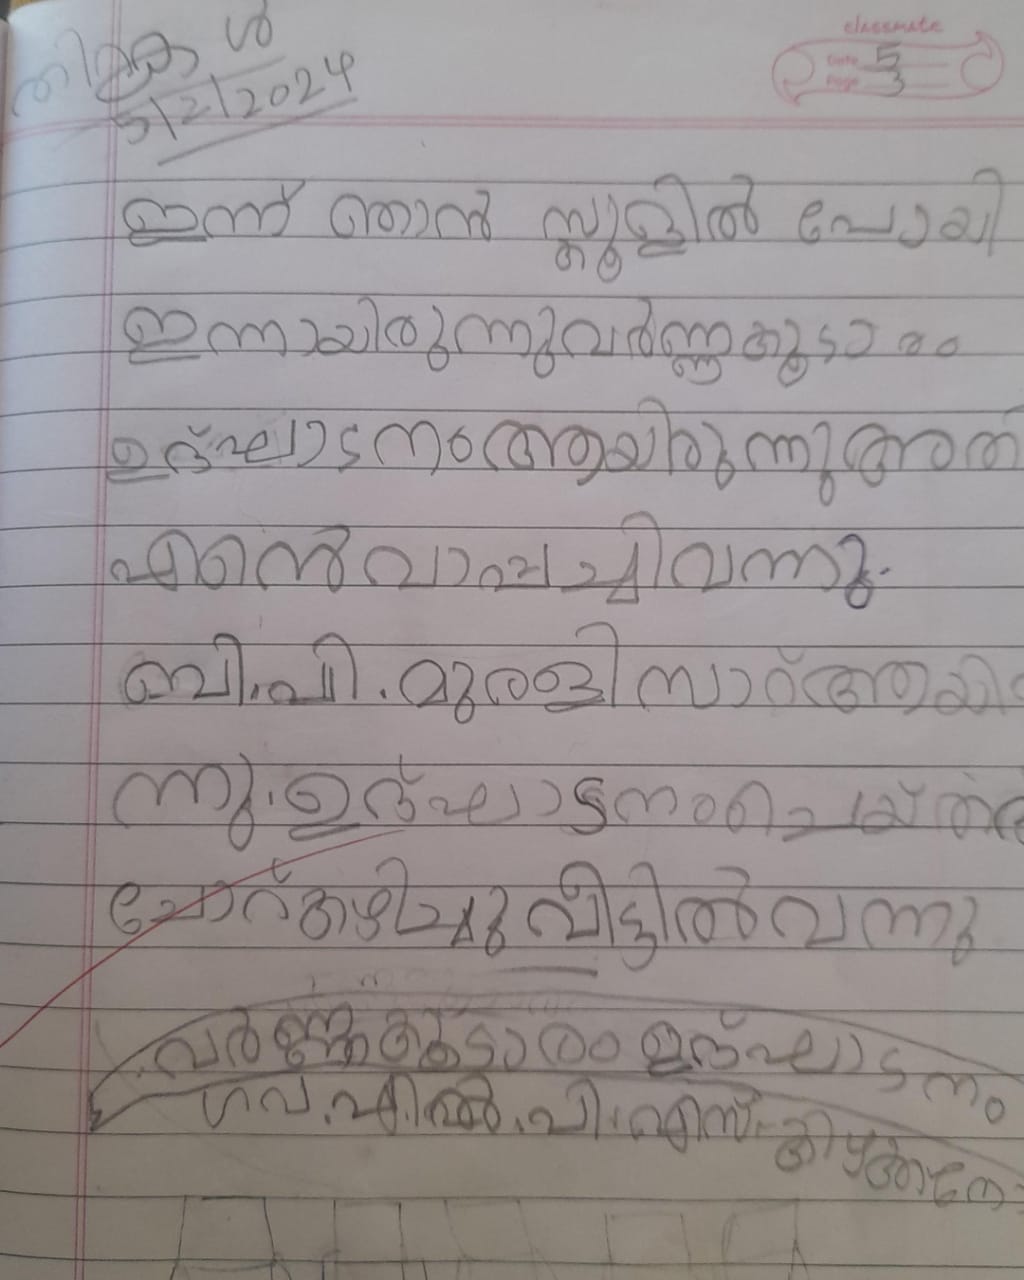 തിങ്കൾ
5/2/2024
classmate
Date 5
Page 3
ഇന്ന് ഞാൻ സ്കൂളിൽ പോയി
ഇന്നായിരുന്നുവർണ്ണകൂടാരം
ഉദ്ഘാടനംആയിരുന്നുഅതി
എൻെവാപ്പച്ചിവന്നു.
ബി.പി.മുരളിസാറ്ആയി
ന്നു.ഉദ്ഘാടനംചെയ്ത
ചോറ്കഴിച്ചുവീട്ടിൽവന്നു
വർണ്ണകൂടാരംഉദ്ഘാടനം
ഗവ.എൽ.പി.എസ്.